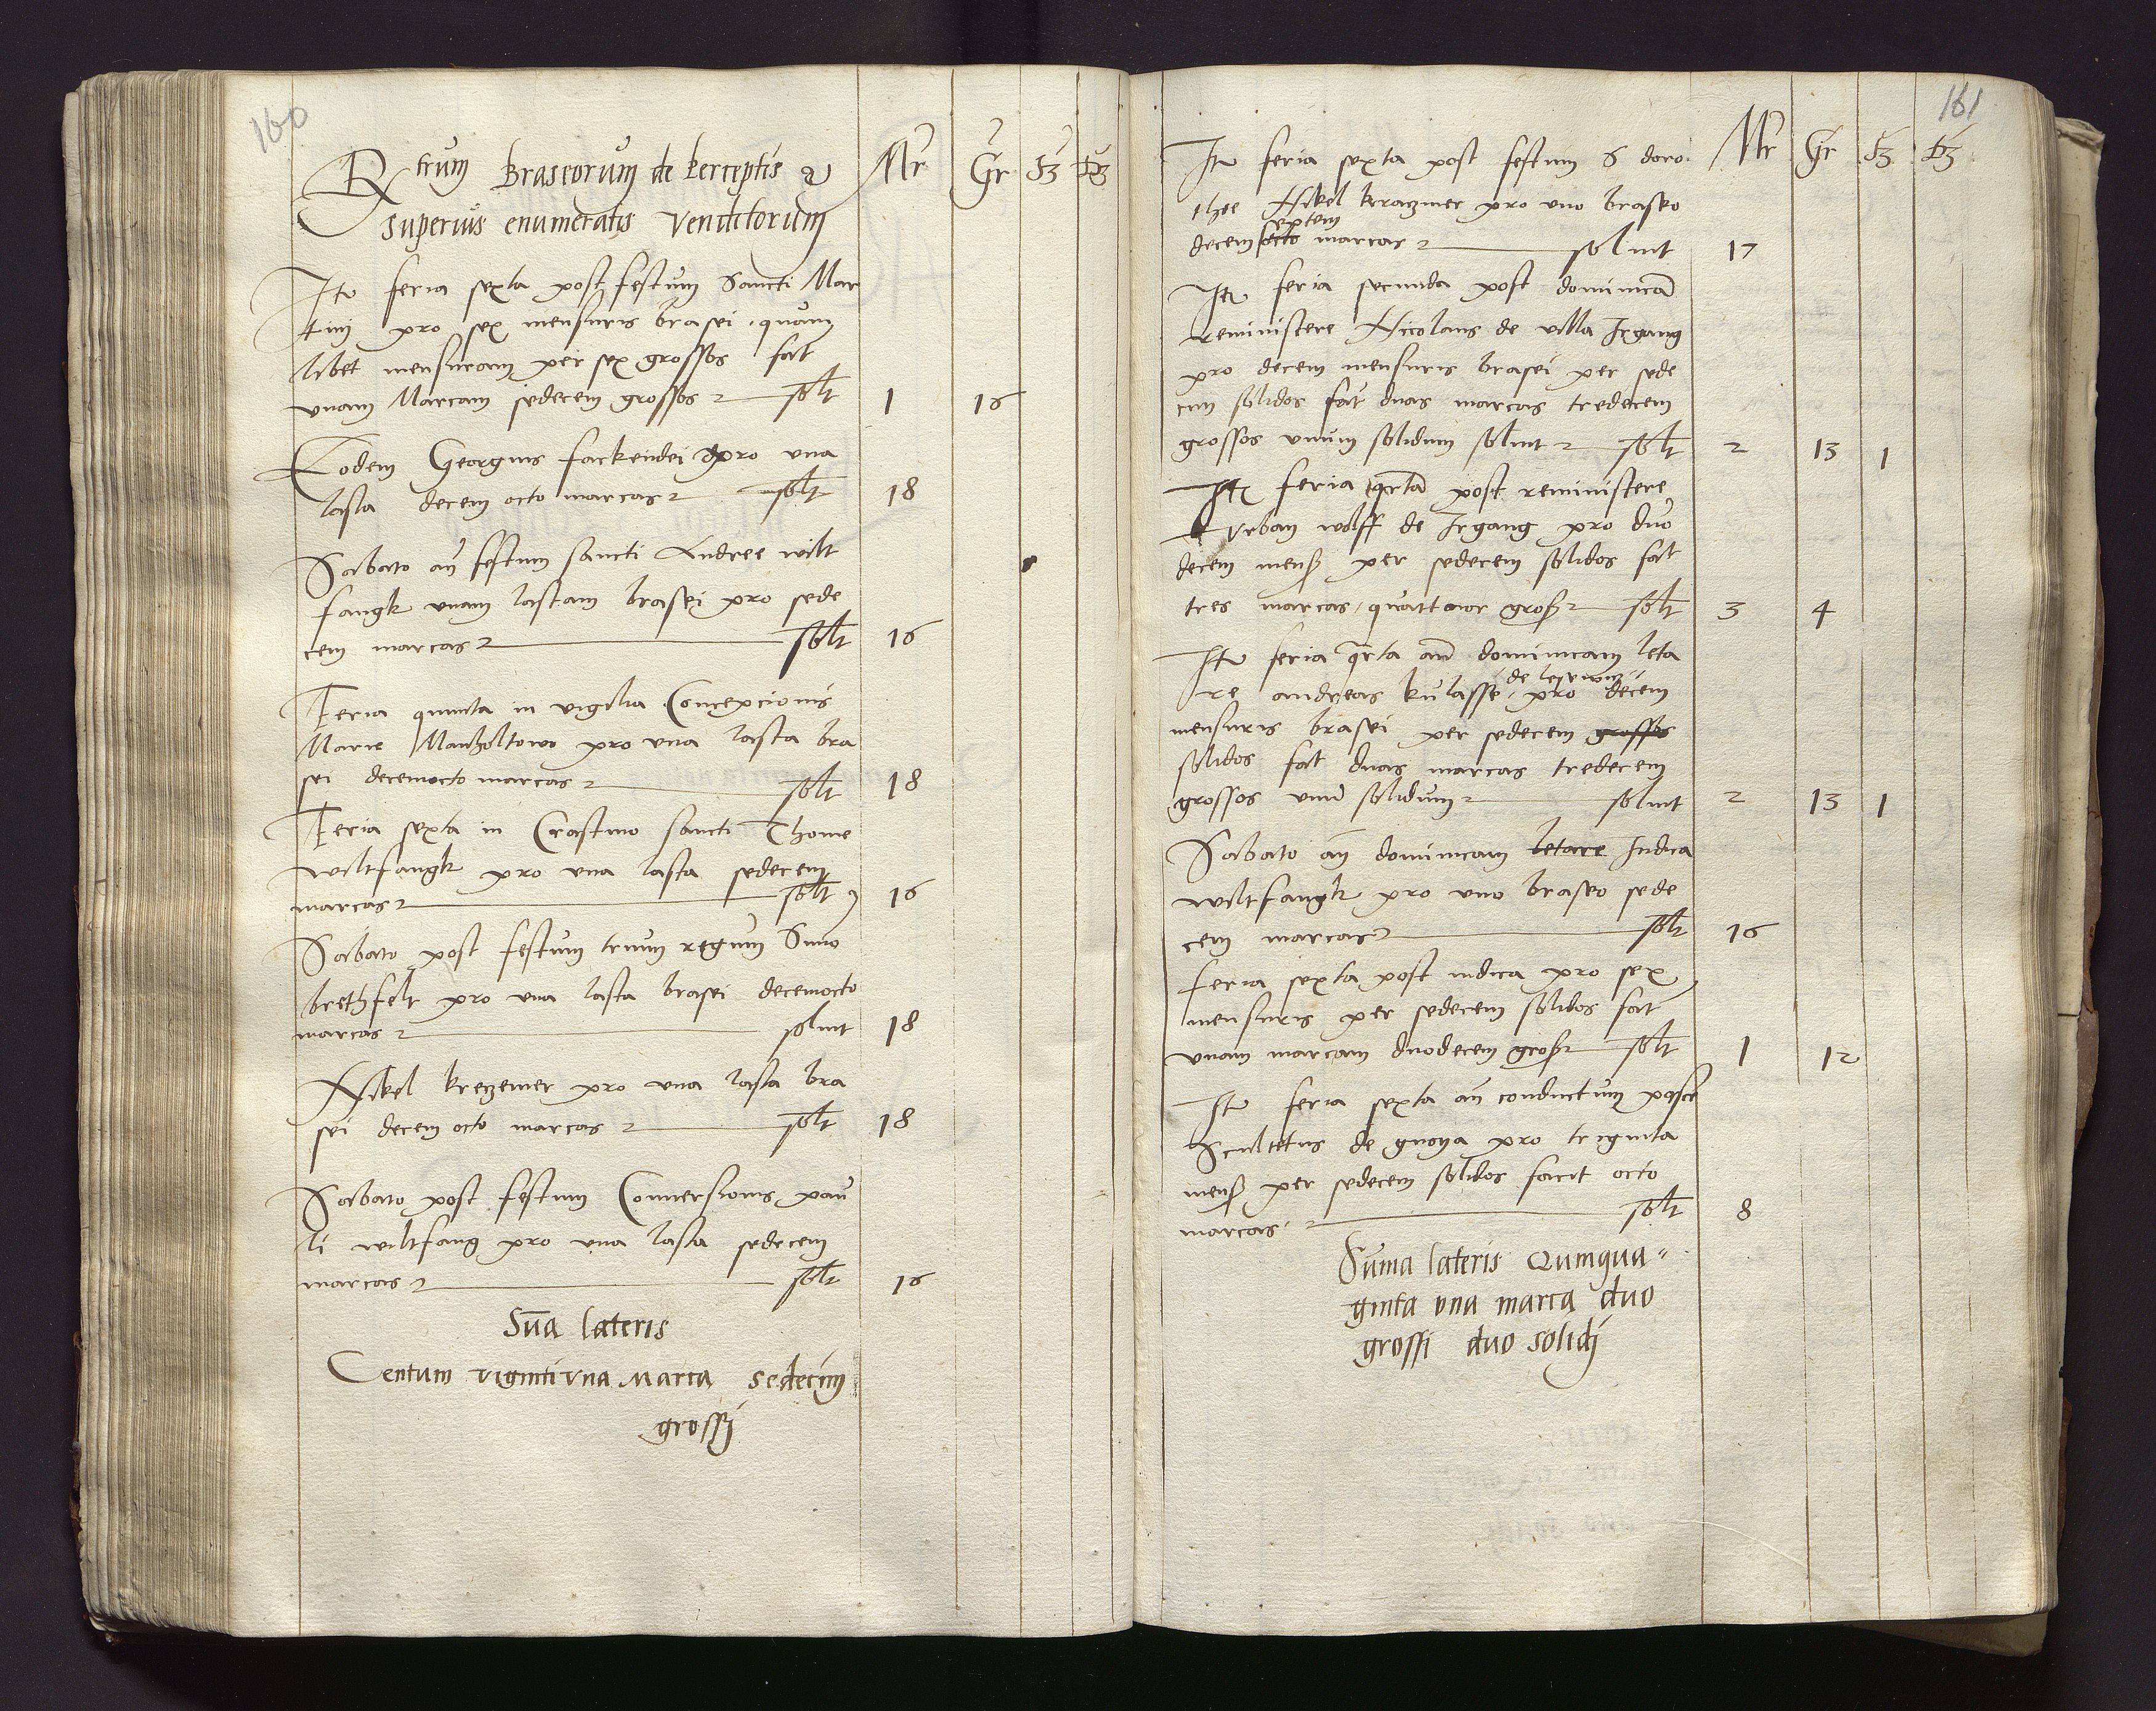 160
trum Braseorum de perceptis &
superius enumeratis venditorum
Mr Gr
Ite feria sexta post festum Sancti Mar
tini pro sex mensuris brasei quam
libet mensuram per sex grossos fat
unam Marcam sedecem grossos solt 1 16
Eodem Georgius fackendei pro una
lasta decem octo marcas solt 18
Sabato an festum sancti Andree wilt
fangk unam lastam brasei pro sede
cem marcas solt 16
Feria quinta in vigilia Concepcionis
Marie Manholtowo pro una lasta bra
sei decemocto marcas solt 18
Feria sexta in Crastino sancti Thome
wiltfangk pro una lasta sedecem
marcas solt 16
Sabato post festum trium regum Simo
brethfelt pro una lasta brasei decemocto
marcas soluit 18
Nikel krezemer pro una lasta bra
sei decem octo marcas solt 18
Sabato post festum Conuersionis pau
li wiltfang pro una lasta sedecem
marcas solt 16
Sua lateris
Centum viginti vna Marca sedecim
grossi
161
Mr Gr
Ite feria sexta post festum S doro
thee Nikel krazmer pro uno braseo
septem
decem octo marcas soluit 17
Ite feria secunda post dominicam
reministere Nicolaus de villa Irgang
pro decem mensuris brasei per sede
cim solidos fat duas marcas tredecem
grossos unum solidum soluit solt 2 13 1
Ite feria qrta post reministere
Vrban wolff de Irgang pro duo
decem mens per sedecem solidos fat
tres marcas quattuor gross solt 3 4
Ite feria qrta an dominicam leta
re andreas kulasse pro decem
mensuris brasei per sedecem grossos
solidos fat duas marcas tredecem
grossos unu solidum soluit 2 13 1
Sabato an dominicam letare Iudica
wiltfangk pro uno braseo sede
cem marcas solt 16
feria sexta post iudica pro sex
mensuris per sedecem solidos fat
unam marcam duodecem gross solt 1 12
Ite feria sexta an conductum pasce
Scultetus de gnoya pro triginta
mens per sedecem solidos facit octo
marcas solt 8
Suma lateris Quinqua=
ginta vna marca duo
grossi duo solidi